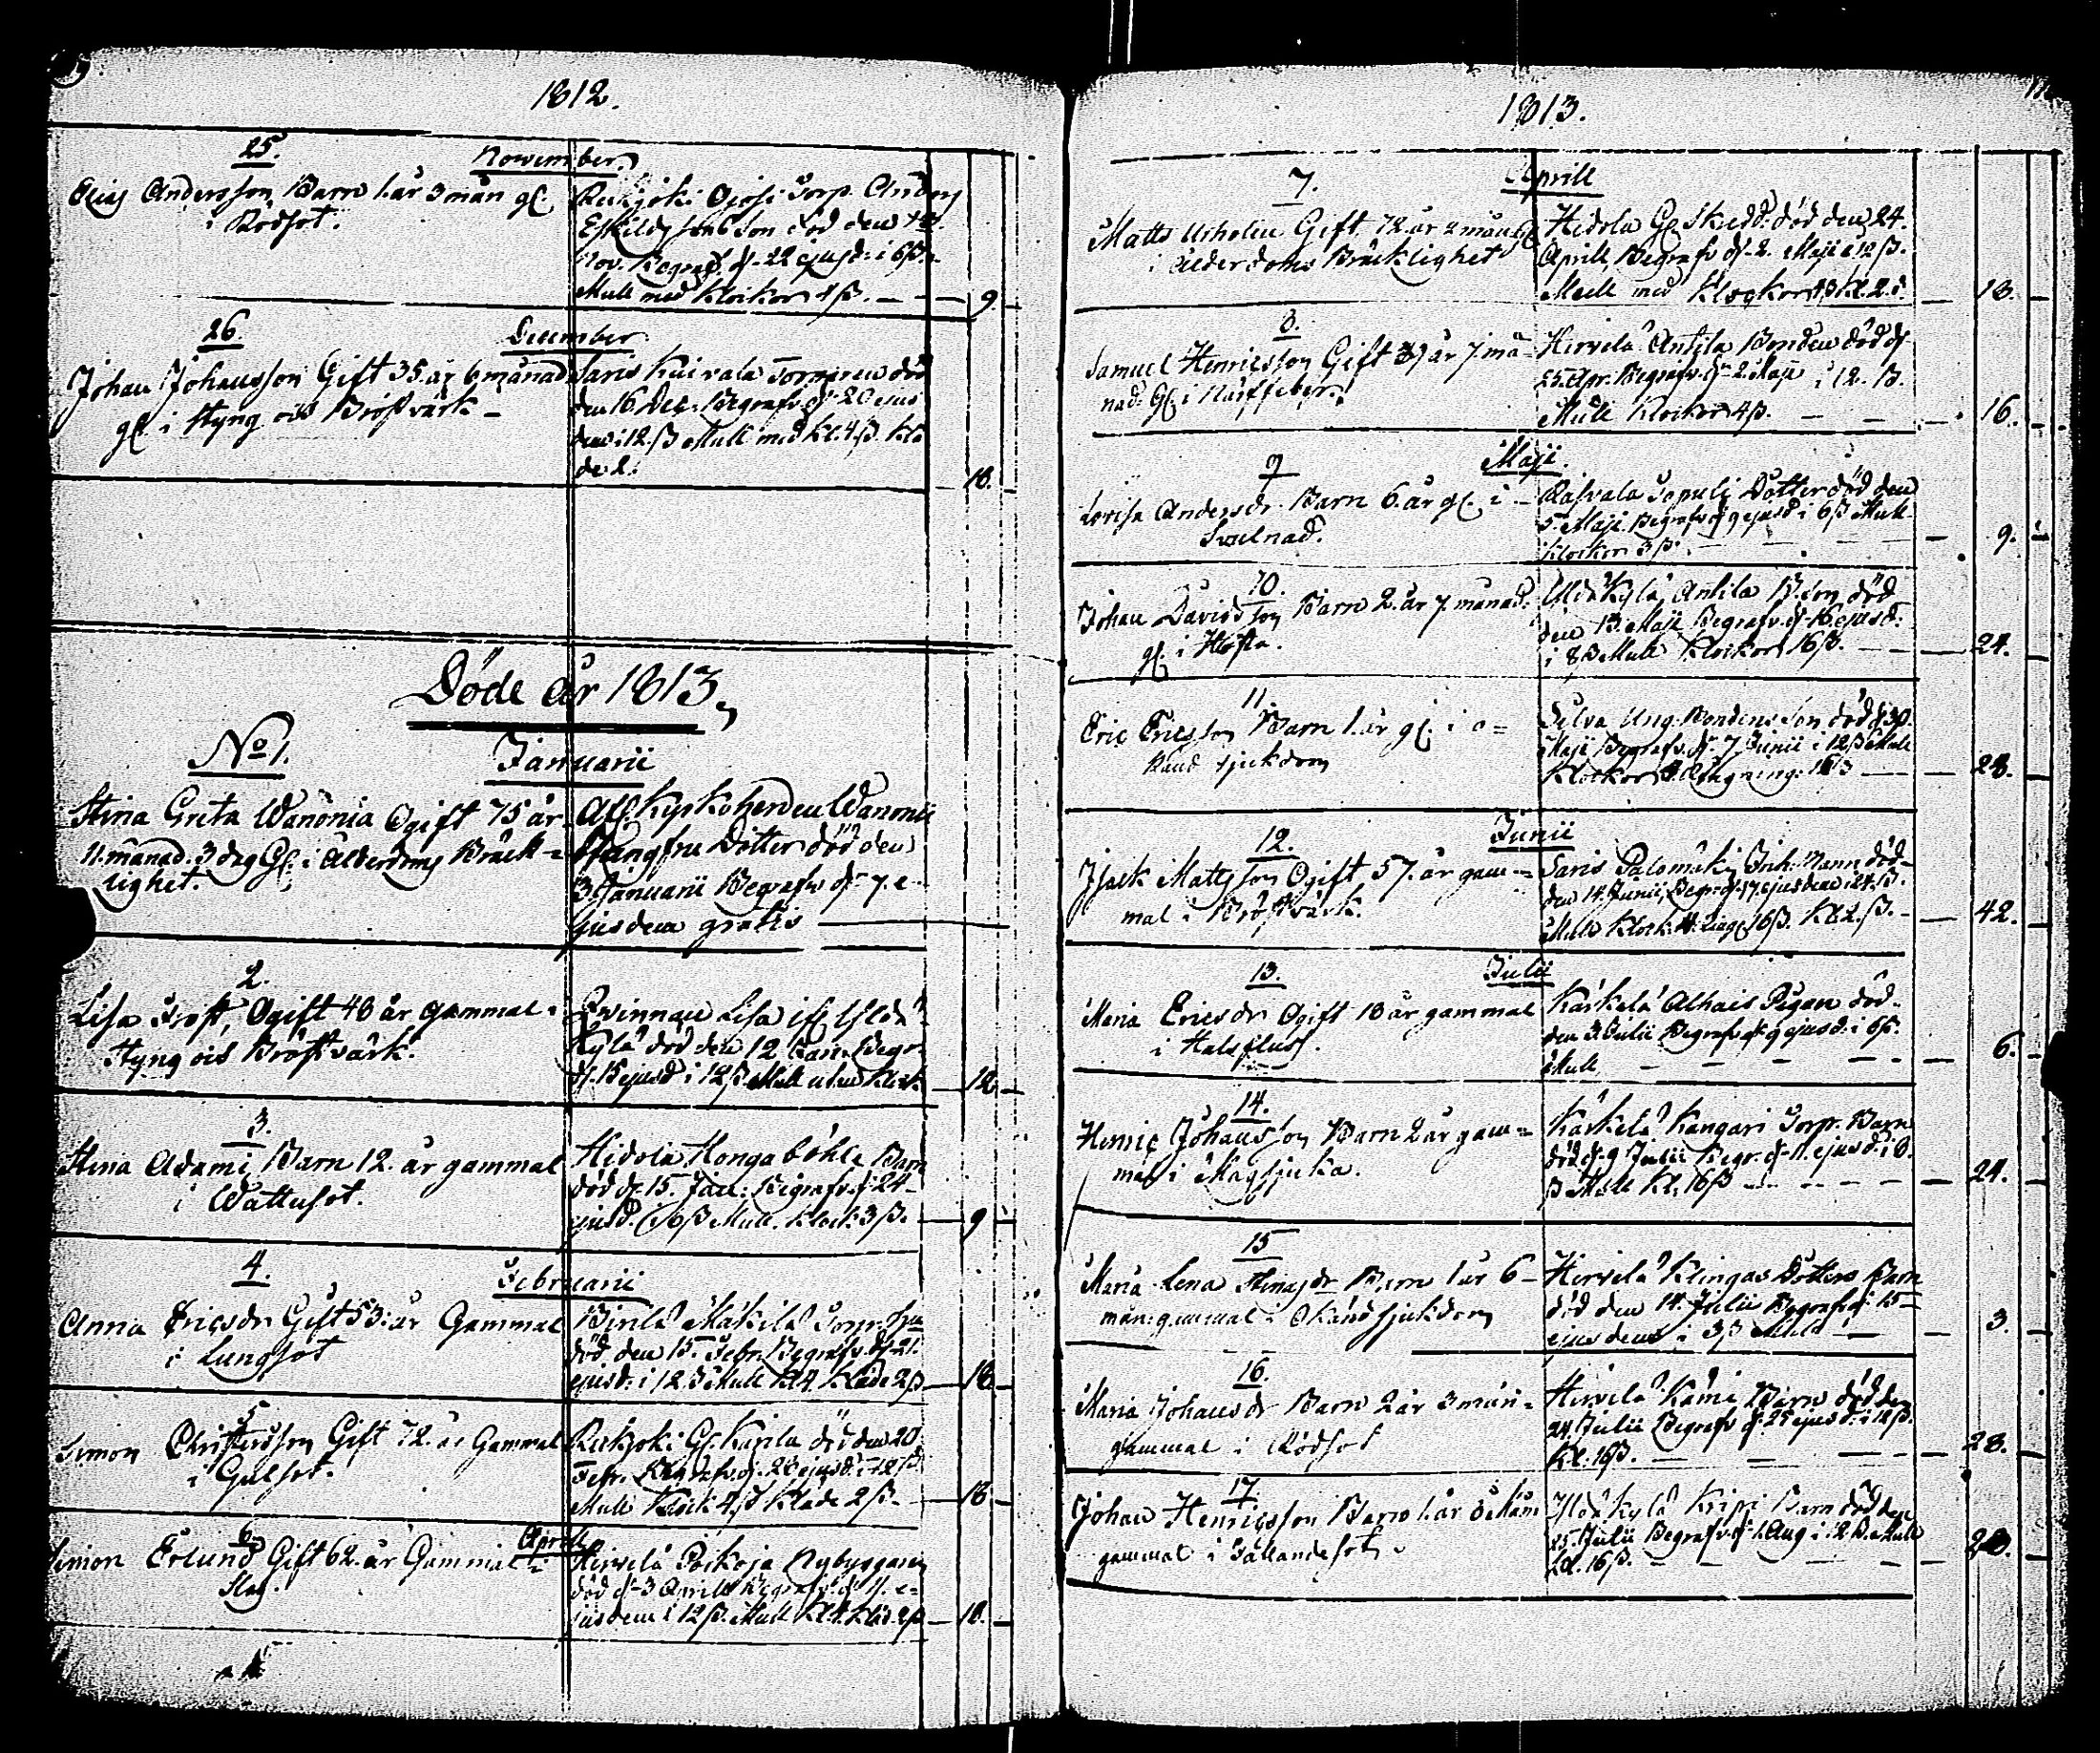 1812.
25.
November.
Elias Andersson Barn 1. år 3 mån gl.
i Rödsot.
Rekijoki Ojosi Torp. Anders
Eskilds son död den
Nov. Begraf. d. 22 ejusd: i 6 ß.
Mull med Klockor ß. 9.
26.
December
Johan Johansson Gift 35. år 6 månad
gl. i Styng och Bröstvärk
Saris Kaivala Torparen död
den 16 Dec. Begrafv. d. 20 ejus
dem i 12. ß Mull med Kl. 4 ß. Klä
de 2. 18.
Döde år 1813,
No 1.
Januarii
Stina Greta Wanonia Ogift 75 år
11. månad. 3 dag Gl. i Ålderdoms Bräck=
lighet.
Afl. Kyrkoherden Wanonii
Jungfru Dotter död den
3. Januarii Begrafv d. 7. e-
jusdem gratis
2.
Lisa Frost, Ogift 48 år gammal i
Styng och Bröstvärk.
Qvinnan Lisa ifr. Yldä
Kylä död den 12 Jan. Begr.
d. 15 ejusd i 12 ß. Mull utan Klock. 12
3.
Stina Adami Barn 12. år gammal
i Wattusot.
Hidola Honga böhle Barn
död d. 15. Jan: Begrafv. d. 24
ejusd. i 6 ß Mull. Klock. 3 ß. 9
4.
Februarii
Anna Ericsdr Gift 53: år Gammal
i Lungsot
Birilä Mäkilä Torp. Hu
död den 15. Febr. Begrafv. d. 21.
ejusd: i 12. ß Mull Kl. 4. Kläde 2 ß 18
5
Simon Christersson Gift 72. år Gammal
i Gulsot.
Rekijoki Gl. Karila död den 20
Febr. Begrafv. d. 28 ejusd: i 12 ß
Mull Klock 4 ß Kläde 2 ß. 18
6
Aprill
Simon Erlund Gift 62. år Gammal i
Slag.
Hirvelä Poikoja Nybyggaren
död d. 3 Aprill Begrafv. d. 11. e=
jusdem i 12 ß. Mull Kl. 4. Kläd. 2 ß 18.
1813.
7.
Aprill
Matts Urholin Gift 72. år 2 mån. gl.
i Ålderdoms Bräcklighet
Hidola Gl. Skrädd. död den 24.
Aprill, Begrafv d. 2. Maji i 12 ß.
Mull med Klockor 4 ß Kl. 2. ß. 18.
8.
Samuel Henricsson Gift år 7 må-
nad: Gl. i Närffeber.
Hirvelä Antila Bonden död d.
25. Apr. Begrafv. d. 2. Maji i 12. ß.
Mull Klockor 4 ß. 16.
9
Maji.
Lovisa Andersdr Barn 6. år gl. i
Svulnad.
Rasvala Sepulj Dotter död den
5. Maji Begrafv d. 9 ejusd i 6 ß Mull
Klockor 3 ß. 9.
10.
Johan Davidsson Barn 2. år 7 månad.
gl. i Hosta.
Yldä Kylä Antila B. son död
den 13. Maji Begrafv. d. 16 ejusd:
i 8 ß Mull Klockor 16 ß. 24.
11
Eric Ericsson Barn 1. år gl. i o=
känd sjukdom
Selva Ung. Bondens son död d. 30.
Maji Begrafv. d. 7 Junii i 12 ß Mull
Klockor & 16 ß 28.
12.
Junii
Isack Mattsson Ogift 57. år gam=
mal i Bröstvärk.
Saris Palomäki Inh. Mann död
den 14. Junii, Begr. d. 17. ejusdem i 24. ß.
Mull Klock. 16 ß. Kl. 2. ß. 42.
13.
Julii
Maria Ericsdr Ogift 18 år gammal
i Halsfluss.
Kärkelä Alhais Pigan död
den 3. Julii Begrafv. d. 9 ejusd: i 6 ß.
Mull 6.
14.
Henric Johansson Barn 2 år gam=
mal i Magsjuka.
Kärkelä Kangari Torp. Barn
död d. 9 Julii Begr. d. 11. ejusd: i 8.
ß Mull Kl. 16 ß 24.
15
Maria Lena Stinasdr Barn 1 år 6
mån: gammal i Okänd sjukdom
Hirvelä Klingas Dotters Barn
död den 14. Julii Begrafv. d. 15
ejusdem i 3 ß Mull 3.
16.
Maria Johansdr Barn 2 år 3 mån
gammal i Rödsot
Hirvelä Kämi Barn död den
24. Julii Begrafv d. 25 ejusd: i 12 ß.
Kl. 16 ß. 28.
17.
Johan Henricsson Barn 1. år 8 Mån
gammal i Fallandesot.
Yldä Kylä Kripi Barn död den
25. Julii Begrafv. d. 1. Aug i 12 ß. Mull
Kl. 16 ß. 28.